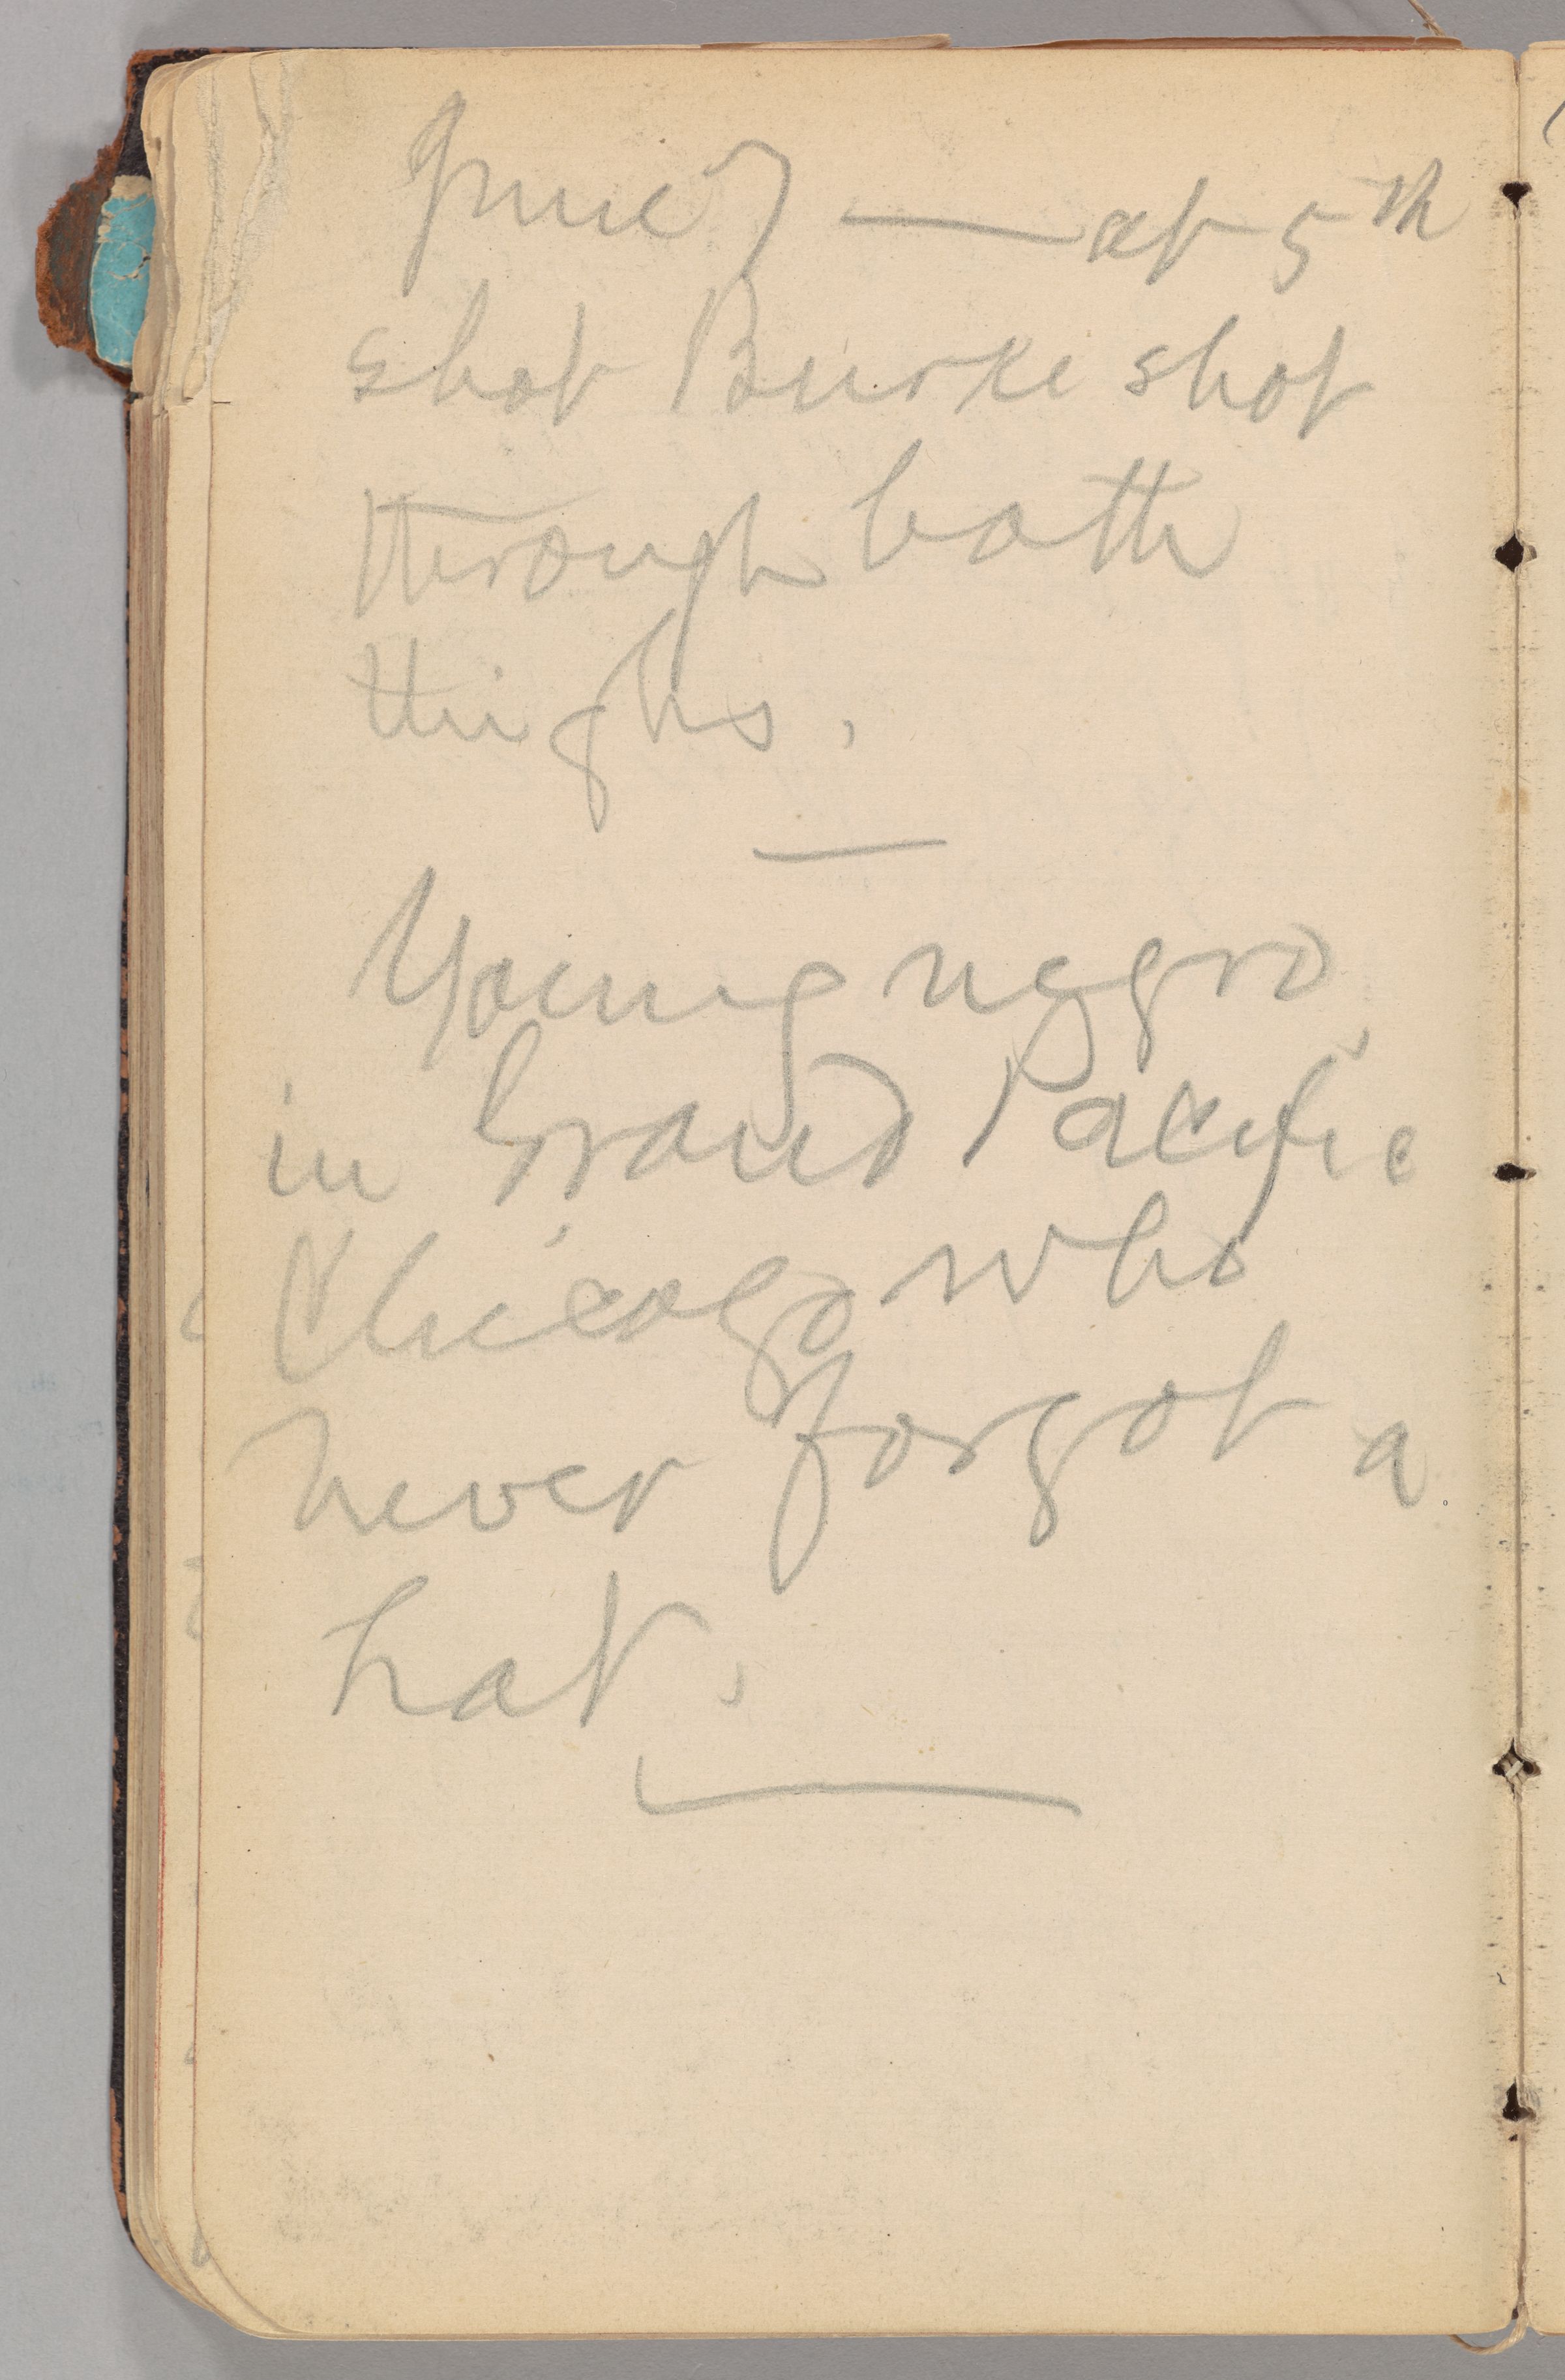 — at 5th
shot Burke shot
through both
thighs.
Young negro
in Grand Pacific,
Chicago, who
never forgot a
hat.